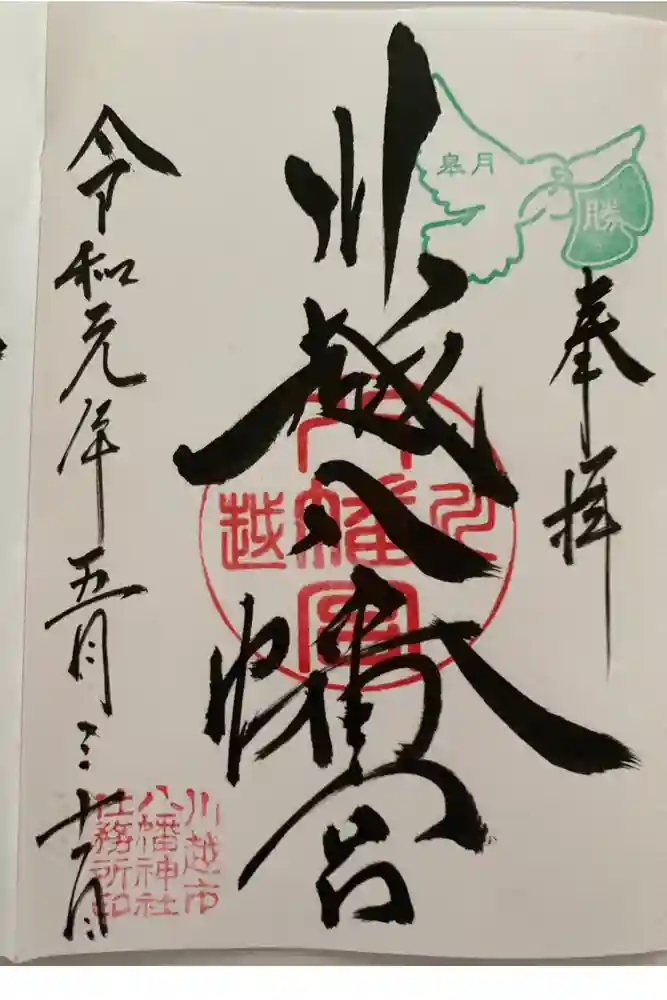 皐月
勝
奉拝
川越八幡宮
川越
八幡宮
令和元年五月三十一日
川越市
八幡神社
社務所印